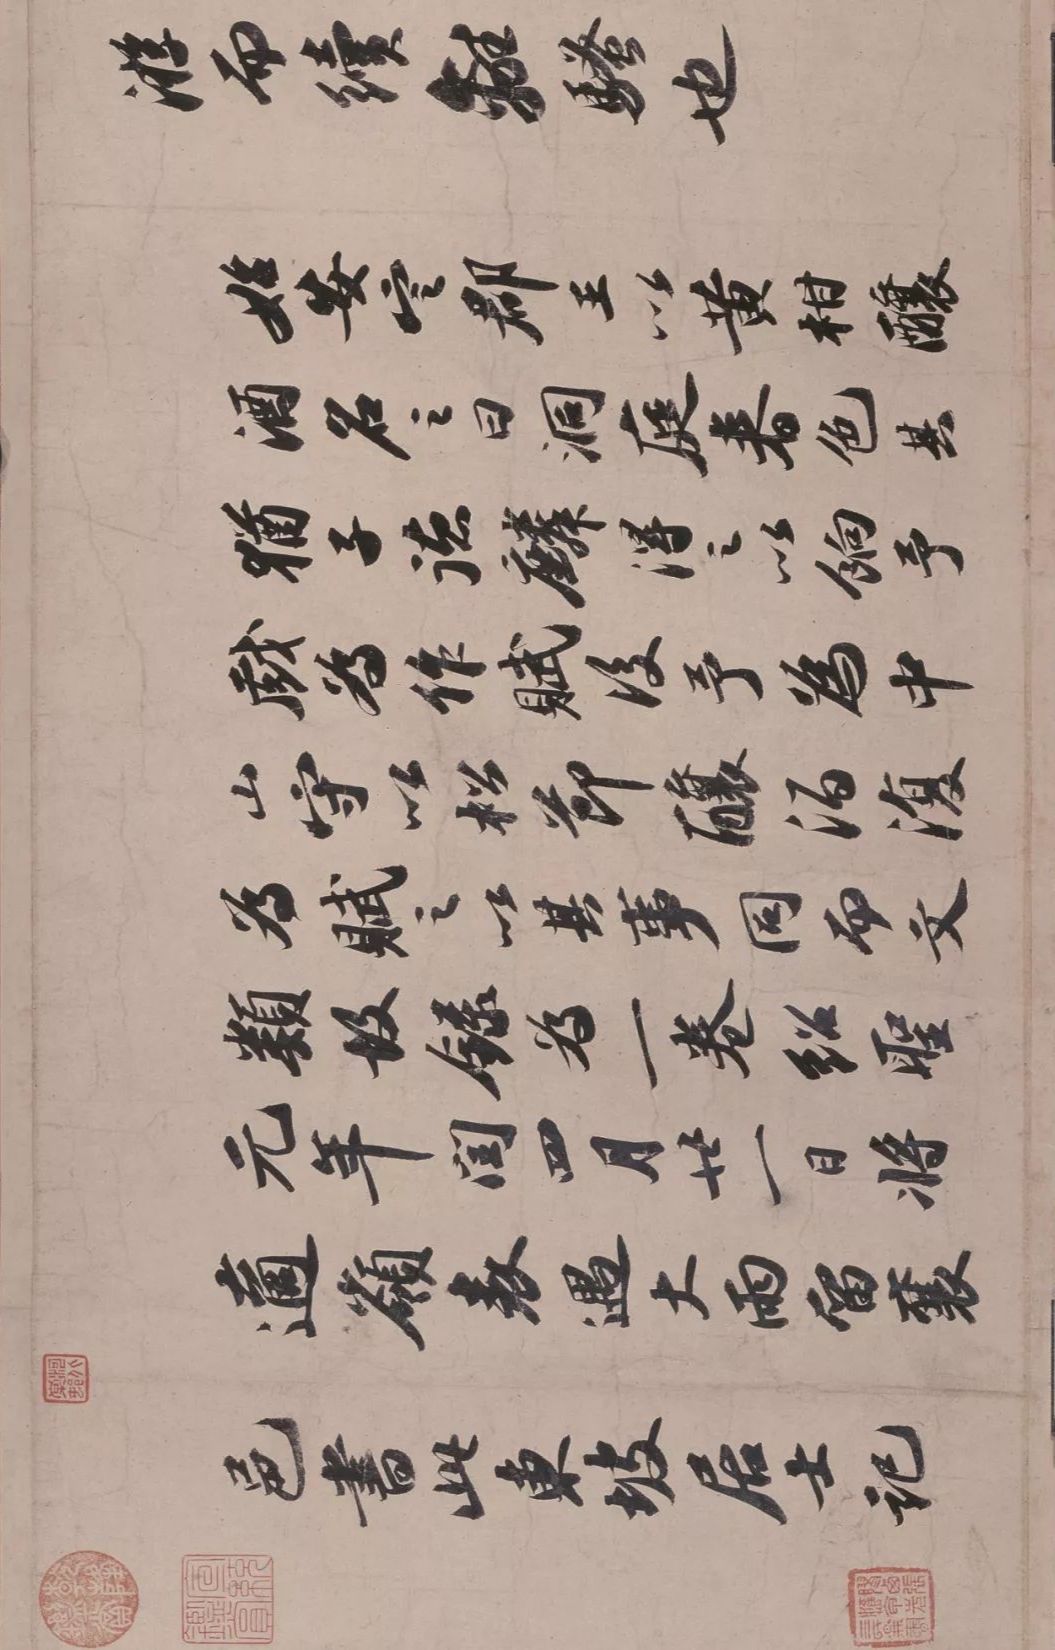 游而續離騷也
始安定郡王以黃柑釀
酒名之曰洞庭春色其
猶子德麟得之以餉予
戲為作賦後予為中
山守以松節釀酒復
為賦之以其事同而文
類故錄為一卷紹聖
元年閏四月廿一日將
適嶺表遇大雨留襄
邑書此東坡居士記